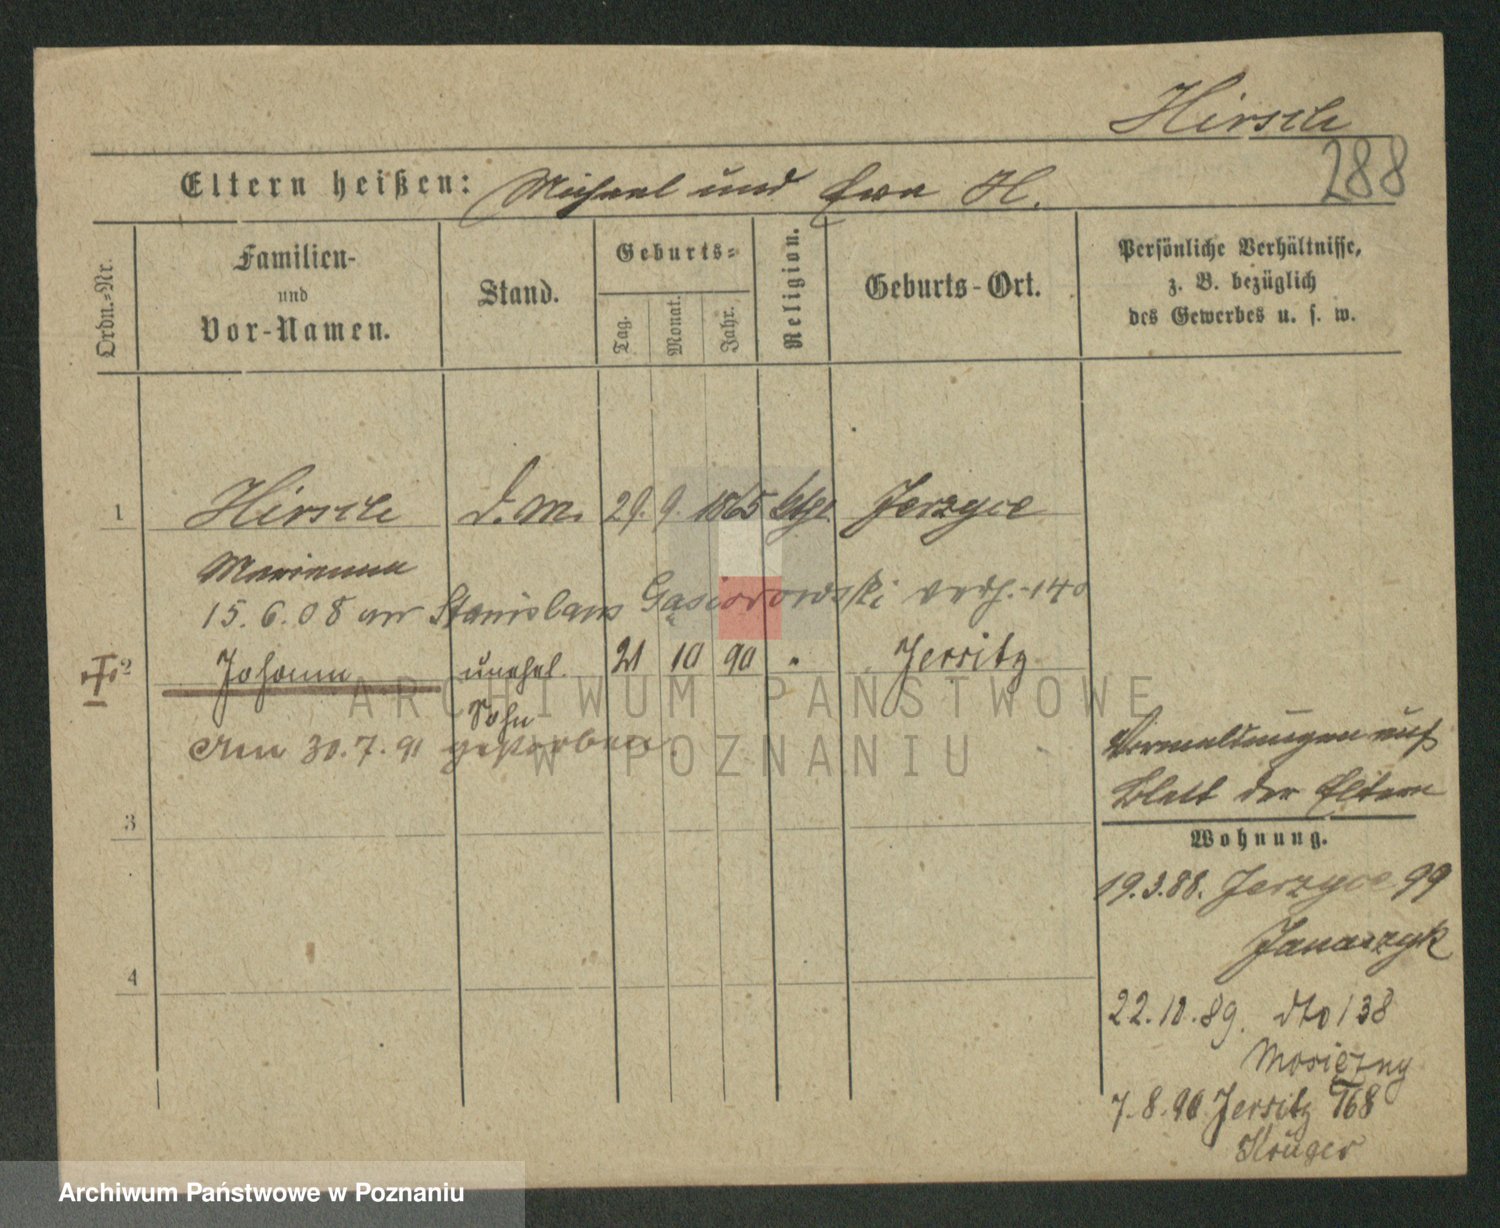 Hirsch
288
Eltern heißen: Michael und Ewa H.
Ordn.-Nr.
Familien-
und
Vor-Namen.
Stand.
Geburts-
Tag.
Monat.
Jahr.
Religion.
Geburts-Ort.
Persönliche Verhältnisse,
z. B. bezüglich
des Gewerbes u. s. w.
1 Hirsch d. M. 29. 9. 1865 kth. Jerzyce
Marianna
15.6.08 an Stanislaus Gąsiorowski verh. 140
2 Johann unehel. 21 10 90 " Jersitz
Sohn
Am 30.7.91 gestorben.
ARCHIWUM PAŃSTWOWE
W POZNANIU
auf
Blatt der Eltern
3
Wohnung.
19.3.88. Jerzyce 99
Janaszyk
4
22.10.89. dto 138
Mosiężny
7.8.90 Jersitz 168
Krüger
Archiwum Państwowe w Poznaniu